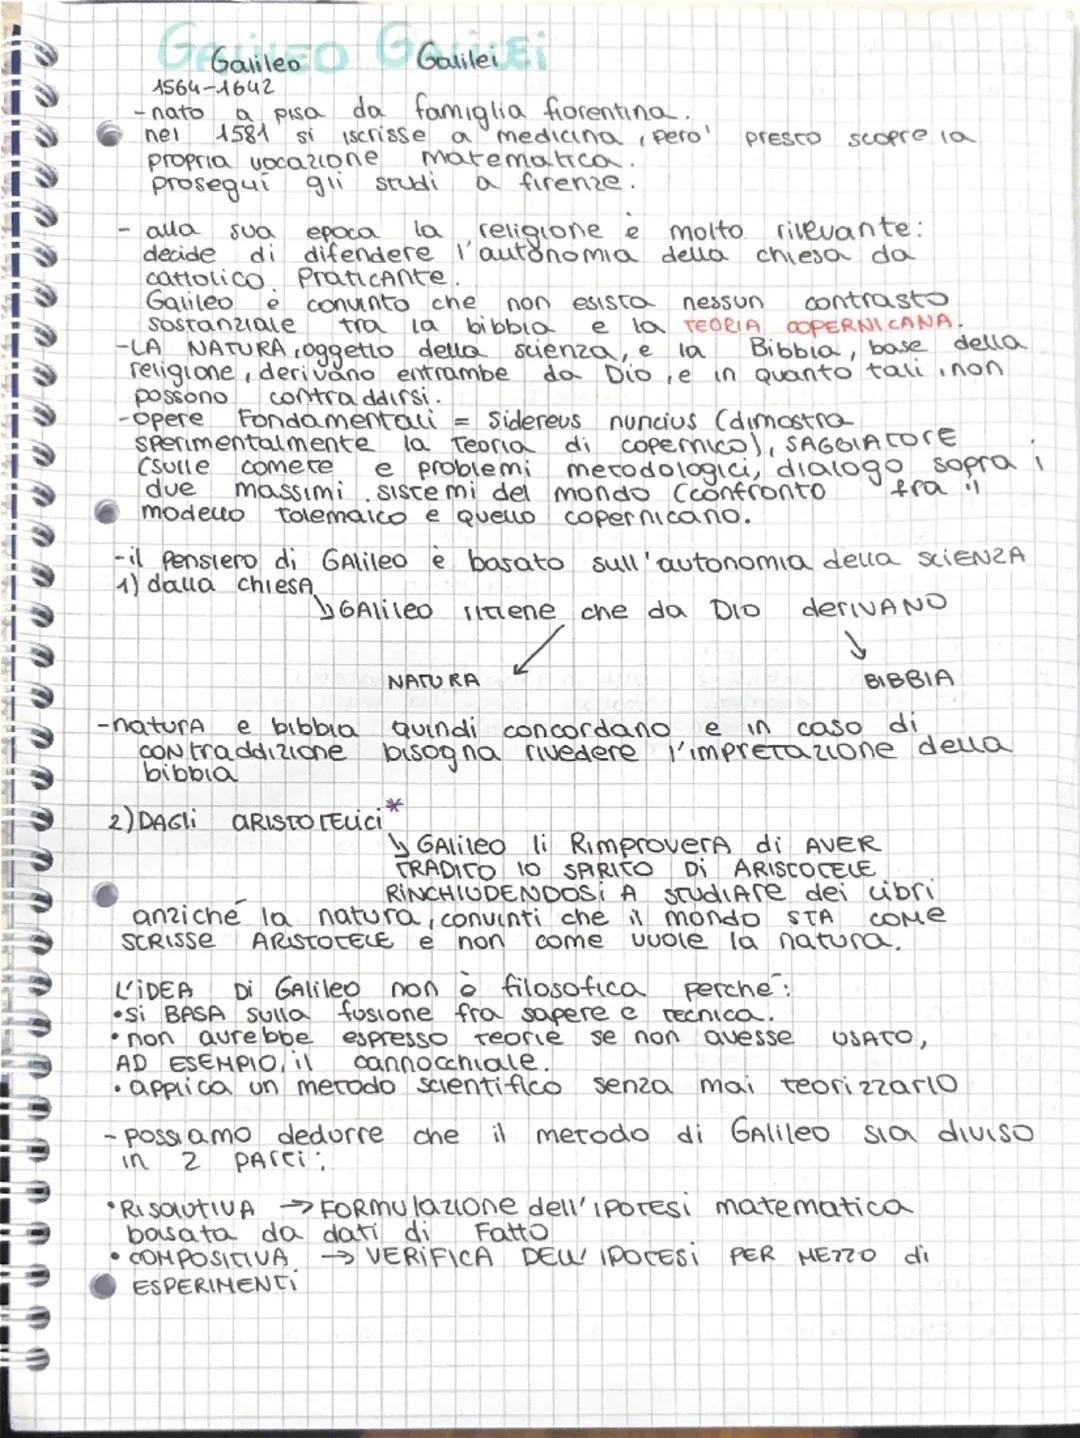 GALILEO GALILEI
Galileo Galilei
1564-1642
- nato a pisa da famiglia fiorentina.
nel 1581 si iscrisse a medicina, pero' presto scopre la
propria vocazione matematica.
proseguì gli studi a firenze.
- alla sua epoca la religione è molto rilevante:
decide di difendere l'autonomia della chiesa da
cattolico praticante.
Galileo è convinto che non esista nessun contrasto
sostanziale tra la bibbia e la TEORIA COPERNICANA.
-LA NATURA, oggetto della scienza, e la Bibbia, base della
religione, derivano entrambe da Dio, e in quanto tali, non
possono contraddirsi.
-opere Fondamentali = Sidereus nuncius (dimostra
sperimentalmente la Teoria di copernico), SAGGIATORE
(sulle comete e problemi metodologici, dialogo sopra i
due massimi sistemi del mondo (confronto fra il
modello tolemaico e quello copernicano.
-il pensiero di GAlileo è basato sull'autonomia della SCIENZA
1) dalla chiesA
↳GAlileo ritiene che da DIO derIVANO
NATURA BIBBIA
-naturA e bibbia quindi concordano e in caso di
contraddizione bisogna rivedere l'impretazione della
bibbia
2) DAGli ARISTOTELICI*
↳ GAlileo li RimproverA di AVER
TRADITO lO SPIRITO Di ARISTOTELE
RINCHIUDENDOSi A STUDIAre dei libri
anziché la natura, convinti che il mondo STA COMe
SCRISSe ARISTOTELE e non come vuole la natura.
L'iDEA Di GAlileo non è filosofica perché:
•si BASA sulla fusione fra sapere e tecnica.
•non avrebbe espresso teorie se non avesse USATO,
AD ESEMPIO, il cannocchiale.
•applica un metodo scientifico senza mai teorizzarlo
- possiamo dedurre che il metodo di GAlileo sia diviso
in 2 parti:
•RISOLUTIVA → FORMulazione dell'iPOTESi matematica
basata da dati di Fatto
•COMPOSITIVA → VERiFiCA DELL' IPOTESi PER MEZZO di
ESPERIMENTi